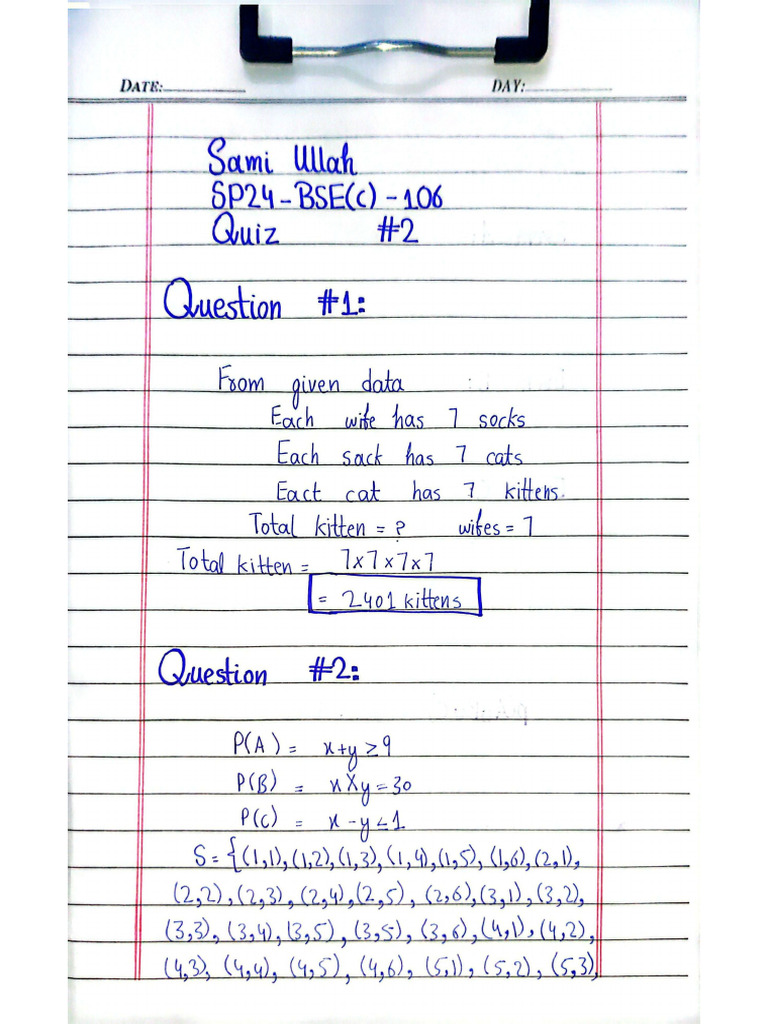 DATE: DAY:
Sami Ullah
SP24-BSE(C)-106
Quiz #2
Question #1:
From given data
Each wife has 7 socks
Each sack has 7 cats
Eact cat has 7 kittens.
Total kitten = ? wifes = 7
Total kitten = 7x7x7x7
= 2401 kittens
Question #2:
P(A) = x+y≥9
P(B) = x X y = 30
P(C) = x - y < 1
S = {(1,1), (1,2), (1,3), (1,4), (1,5), (1,6), (2,1),
(2,2), (2,3), (2,4), (2,5), (2,6), (3,1), (3,2),
(3,3), (3,4), (3,5), (3,5), (3,6), (4,1), (4,2),
(4,3), (4,4), (4,5), (4,6), (5,1), (5,2), (5,3),